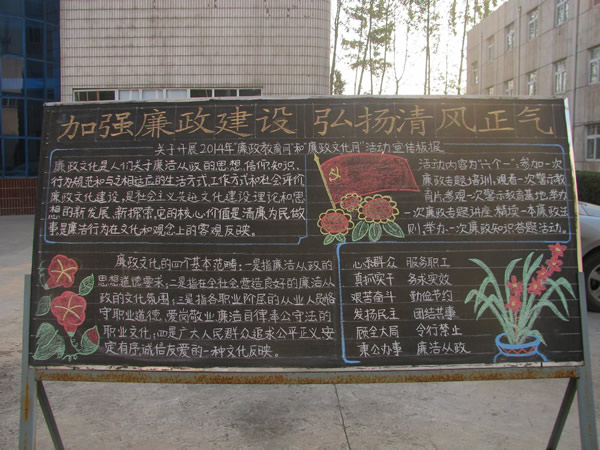 加强廉政建设 弘扬清风正气
关于开展2014年"廉政教育月"和"廉政文化月"活动宣传板报
廉政文化是人们关于廉洁从政的思想、信仰、知识、
行为规范和与之相适应的生活方式、工作方式和社会评价
廉政文化建设,是社会主义先进文化建设理论和思
想的新发展、新探索,它的核心价值是清廉为民做
事是廉洁行为在文化和观念上的客观反映。
活动内容为"六个一",参加一次
廉政专题培训,观看一次警示教
育片,参观一次警示教育基地,举办
一次廉政专题讲座,精读一本廉政法
则,举办一次廉政知识答题活动。
廉政文化的四个基本范畴:一是指廉洁从政的
思想道德要求;二是指在全社会营造良好的廉洁从
政的文化氛围;三是指各职业阶层的从业人员恪
守职业道德、爱岗敬业廉洁自律奉公守法的
职业文化;四是广大人民群众追求公平正义、安
定有序诚信友爱的一种文化反映。
心系群众 服务职工
真抓实干 务求实效
艰苦奋斗 勤俭节约
发扬民主 团结共事
顾全大局 令行禁止
秉公办事 廉洁从政